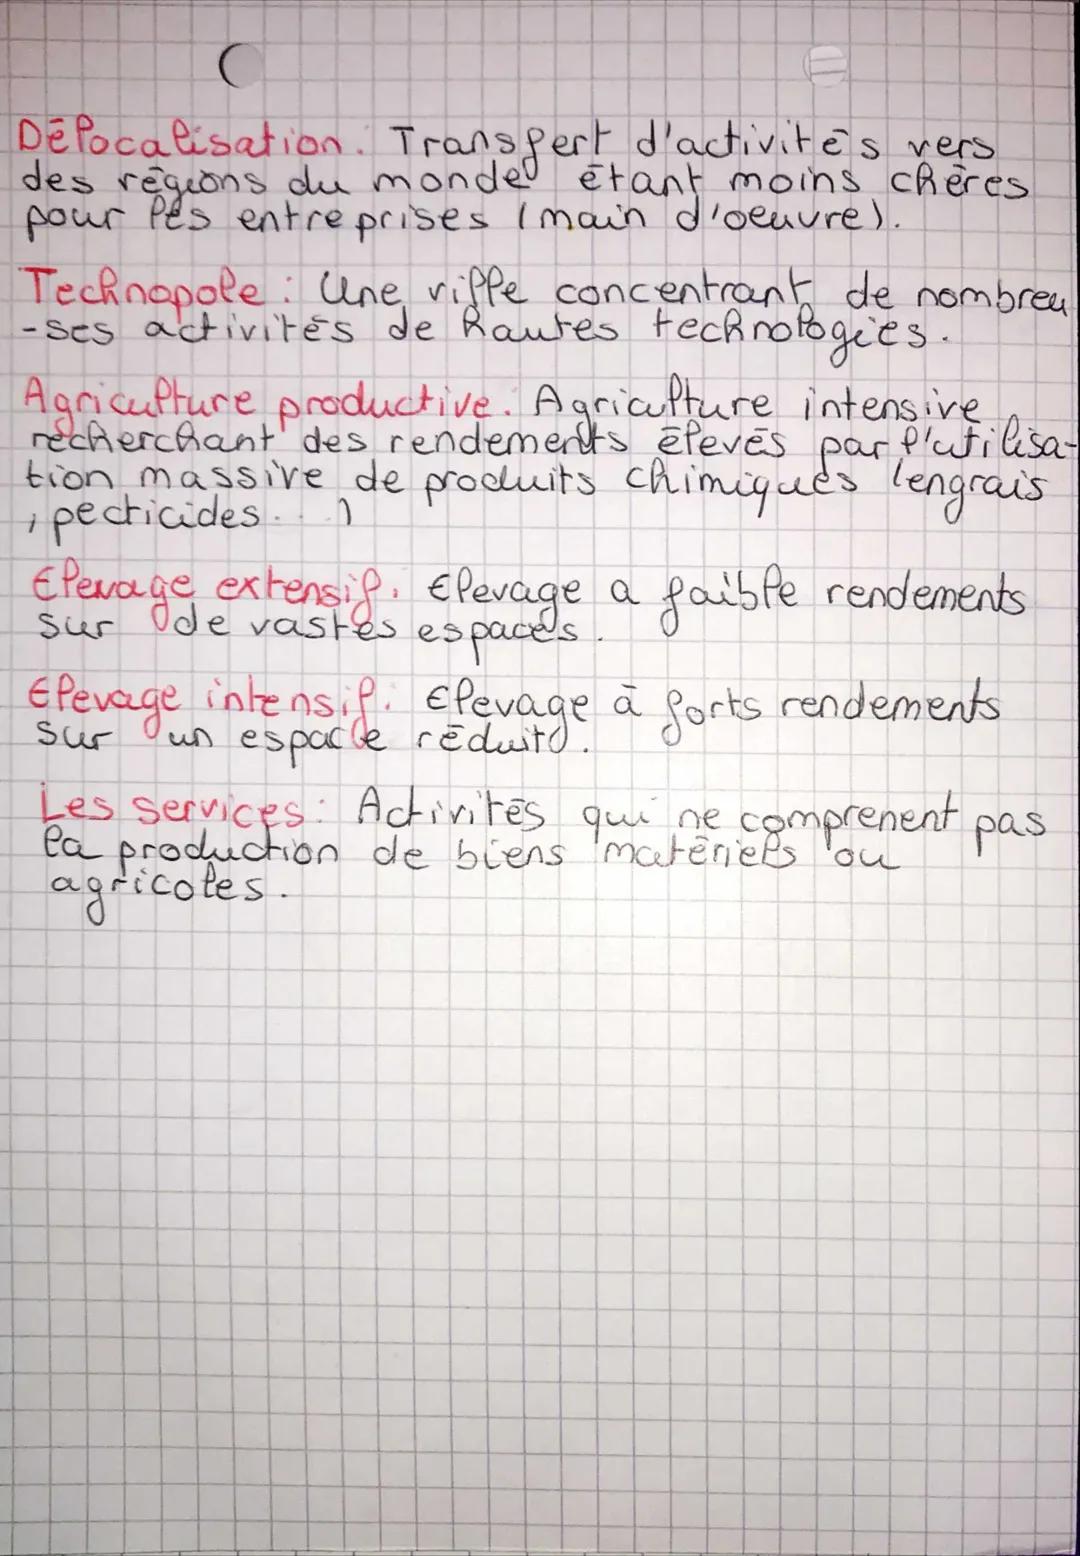 Délocalisation : Transfert d'activités vers
des régions du monde étant moins chères
pour les entreprises (main d'oeuvre).
Technopole : Une ville concentrant de nombreu
-ses activités de hautes technologies.
Agriculture productive : Agriculture intensive
recherchant des rendements élevés par l'utilisa-
tion massive de produits chimiques (engrais
, pecticides...)
Elevage extensif : Elevage a faible rendements
sur de vastes espaces.
Elevage intensif : Elevage à forts rendements
sur un espace réduit.
Les services : Activités qui ne comprenent pas
la production de biens matériels ou
agricoles.